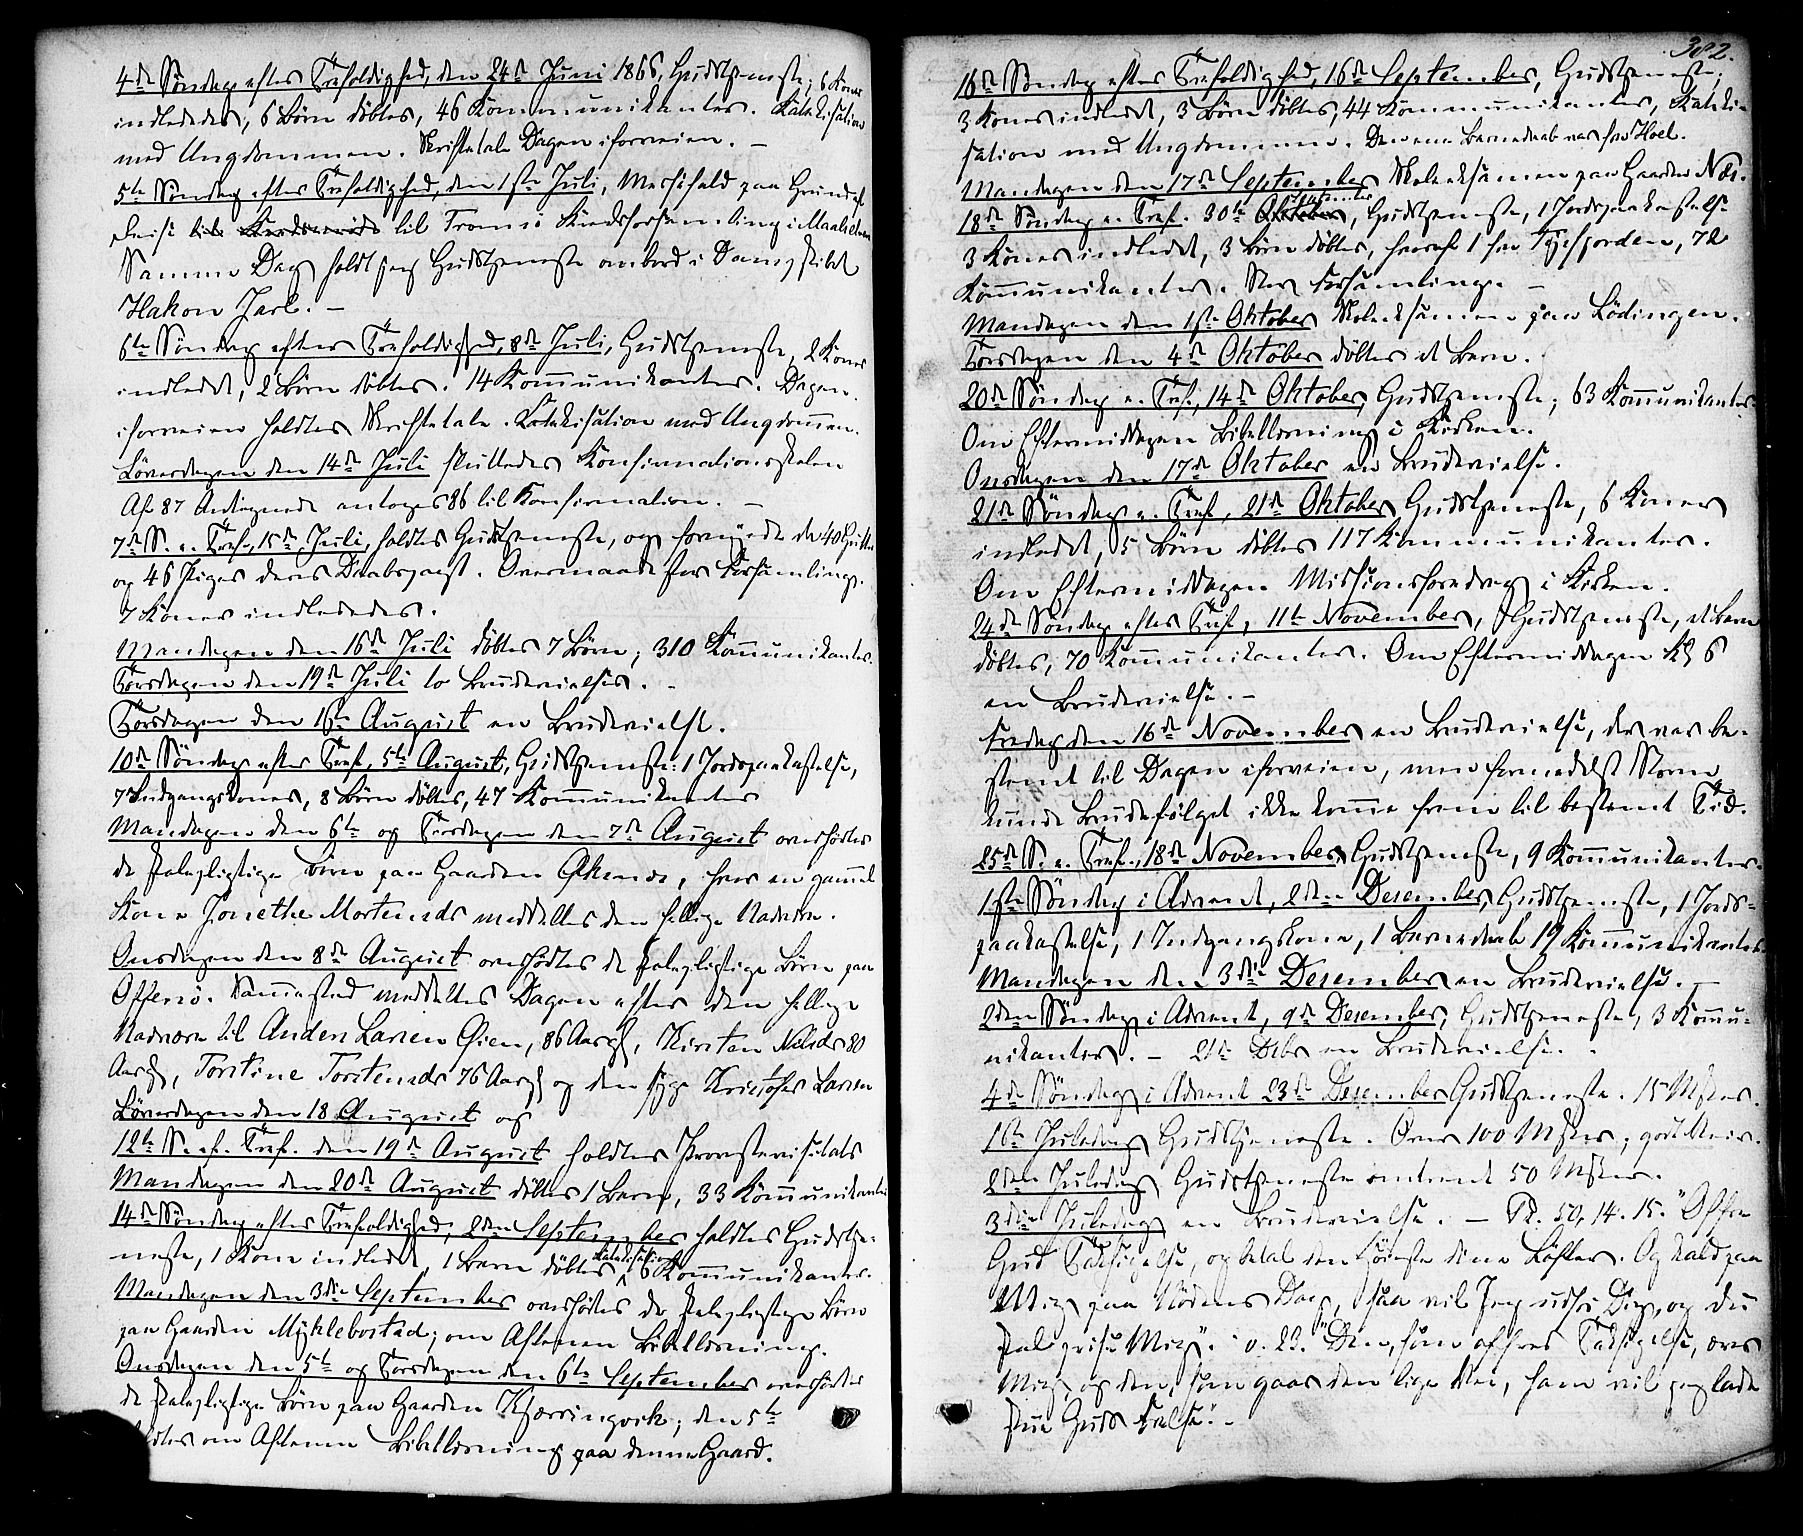 4de Söndag efter Trefoldighed, den 24de Juni 1866, Gudstjeneste; 6 Koner
indlededes, 6 Börn döbtes, 46 Kommunikanter. Katekisation
med Ungdommen. Skriftetale Dagen iforveien. —
5te Söndag efter Trefoldighed, den 1ste Juli, Messefald paa Grund af
Reise til til Tromsö Stiftsforsamling i Maalselven
Samme Dag holdt jeg Gudstjeneste ombord i Dampskibet
Hakon Jarl. —
6te Söndag efter Trefoldighed, 8de Juli, Gudstjeneste, 2 Koner
indledet, 2 Börn döbtes. 14 Kommunikanter. Dagen
iforveien holdtes Skriftetale. Katekisation med Ungdommen.
Löverdagen den 14de Juli sluttedes Konfirmationsskolen
Af 87 Antegnede antoges 86 til Konfirmation. —
7de S. e. Tref., 15de Juli, holdtes Gudstjeneste, og fornyede de 40 Gutter
og 46 Piger deres Daabspagt. Overmaade stor Forsamling.
7 Koner indlededes.
Mandagen den 16de Juli döbtes 7 Börn; 310 Kommunikanter.
Torsdagen den 19de Juli to Brudevielser. —
Torsdagen den August en Brudevielse.
10de Söndag efter Tref., 5te August, Gudstjeneste: 1 Jordspaakastelse,
7 Indgangskoner, 8 Börn döbtes, 47 Kommunikanter
Mandagen den 6te og Tirsdagen den 7de August overhörtes
de skolepligtige Börn paa Gaarden, hvor en gammel
Kone Jonethe Mortensds meddeltes den hellige Nadvere.
Onsdagen den 8de August overhörtes de skolepligtige Börn paa
Offersö. Sammested meddeltes Dagen efter den hellige
Nadvere til Anders Larsen Öien, 86 Aar gl, Kirsten Nilsds 80
Aar gl, Torstine Torstensds 76 Aar gl og den syge Kristofer Larsen
Löverdagen den 18 August og
12te S. ef. Tref. den 19de August holdtes Provstevisitats
Mandagen den 20de August döbtes 1 Barn, 33 Kommunikanter
14de Söndag efter Trefoldighed, 2den September holdtes Gudstje-
neste, 1 Kone indledet, 1 Barn döbtes, Katekisation 6 Kommunikanter.
Mandagen den 3die September overhörtes de skolepligtige Börn
paa Gaarden Myklebostad; om Aftenen Bibellæsning.
Onsdagen den 5te og Torsdagen den 6te September overhörtes
de skolepligtige Börn paa Gaarden Kjærringvik; den 5te
holdtes om Aftenen Bibellæsning paa denne Gaard.
382.
16de Söndag efter Trefoldighed, 16de September, Gudstjeneste;
3 Koner indledet, 3 Börn döbtes, 44 Kommunikanter, Kateki-
sation med Ungdommen. Den ene Barnedaab var fra Hoel.
Mandagen den 17de September Skoleeksamen paa Gaarden Næs.
18de Söndag e. Tref. 30te Oktober September, Gudstjeneste, 1 Jordspaakastelse
3 Koner indledet, 3 Börn döbtes, hvoraf 1 fra Tysfjorden, 72
Kommunikanter. Stor Forsamling. —
Mandagen den 1ste Oktober Skoleeksamen paa Lödingen.
Torsdagen den 4de Oktober döbtes et Barn.
20de Söndag e. Tref., 14de Oktober, Gudstjeneste; 63 Kommunikanter.
Om Eftermiddagen Bibellæsning i Kirken.
Onsdagen den 17de Oktober en Brudevielse.
21de Söndag e. Tref, 21de Oktober Gudstjeneste, 6 Koner
indledet, 5 Börn döbtes 117 Kommunikanter.
Om Eftermiddagen Missionsforedrag i Kirken.
24de Söndag efter Tref, 11te November, Gudstjeneste, et Barn
döbtes, 70 Kommunikanter. Om Eftermiddagen Kl 6
en Brudevielse. —
Fredag den 16de November en Brudevielse, der var be-
stemt til Dagen iforveien, men formedelst Storm
kunde Brudefölget ikke komme frem til bestemt Tid.
25de S. e. Tref., 18de November, Gudstjeneste, 9 Kommunikanter.
1ste Söndag i Advent, 2den Desember, Gudstjeneste, 1 Jords-
paakastelse, 1 Indgangskone, 1 Barnedaab 19 Kommunikanter.
Mandagen den 3die Desember en Brudevielse. —
2den Söndag i Advent, 9de Desember, Gudstjeneste, 3 Kommu-
nikanter. — 21de Debr en Brudevielse.
4de Söndag i Advent 23de Desember Gudstjeneste. 15 Msker.
1ste Juledag Gudstjeneste. Over 100 Msker; godt Veir.
2den Juledag Gudstjeneste omtrent 50 Msker.
3die Juledag en Brudevielse. — Ps. 50, 14. 15. "Offre
Gud Taksigelse, og betal den Höieste dine Löfter. Og kald paa
Mig paa Nödens Dag, saa vil Jeg udfri Dig, og du
skal prise Mig". v. 23. "Den, som offrer Taksigelse, ærer
Mig og den, som gaar den lige Vei, ham vil jeg lade
see Guds Frelse". —